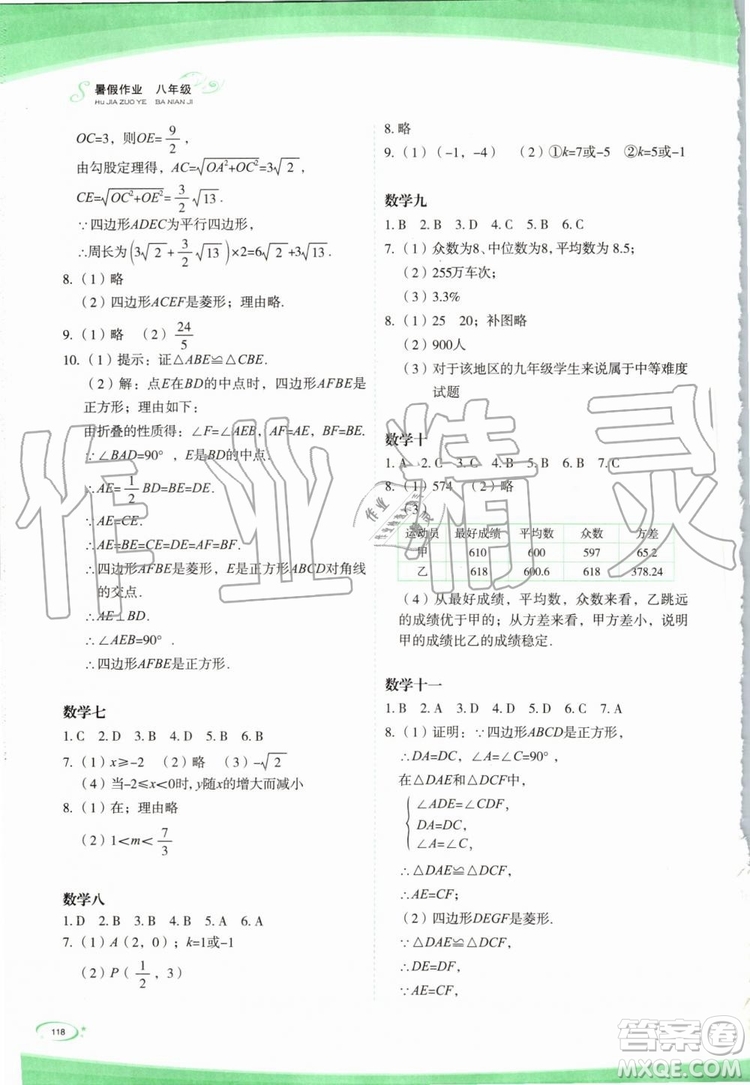 暑假作业 八年级
HU JIA ZUO YE BA NIAN JI
OC=3，则OE=9/2，
由勾股定理得，AC=√(OA²+OC²)=3√2，
CE=√(OC²+OE²)=3/2√13.
∵四边形ADEC为平行四边形，
∴周长为(3√2+3/2√13)×2=6√2+3√13.
8.（1）略
（2）四边形ACEF是菱形；理由略.
9.（1）略 （2）24/5
10.（1）提示：证△ABE≌△CBE.
（2）解：点E在BD的中点时，四边形AFBE是
正方形；理由如下：
由折叠的性质得：∠F=∠AEB，AF=AE，BF=BE.
∵∠BAD=90°，E是BD的中点.
∴AE=1/2BD=BE=DE，
∴AE=CE.
∴AE=BE=CE=DE=AF=BF.
∴四边形AFBE是菱形，E是正方形ABCD对角线
的交点.
∴AE⊥BD.
∴∠AEB=90°.
∴四边形AFBE是正方形.
数学七
1. C 2. D 3. B 4. B 5. B 6. A
7.（1）x≥-2 （2）略 （3）-√2
（4）当-2≤x<0时，y随x的增大而减小
8.（1）在；理由略
（2）1<m<7/3
数学八
1. D 2. B 3. B 4. A 5. A 6. A
7.（1）A（2，0）；k=1或-1
（2）P（1/2，3）
118
8. 略
9.（1）（-1，-4） （2）①k=7或-5 ②k=5或-1
数学九
1. B 2. B 3. D 4. C 5. B 6. C
7.（1）众数为8、中位数为8，平均数为 8.5；
（2）255万车次；
（3）3.3%
8.（1）25 20；补图略
（2）900人
（3）对于该地区的九年级学生来说属于中等难度
试题
数学十
1. A 2. C 3. C 4. B 5. D 6. B 7. C
8.（1）574 （2）略
（3）
运动员 最好成绩 平均数 众数 方差
甲 610 600 597 65.2
乙 618 600.6 618 378.24
（4）从最好成绩，平均数，众数来看，乙跳远
的成绩优于甲的；从方差来看，甲方差小，说明
甲的成绩比乙的成绩稳定.
数学十一
1. B 2. A 3. D 4. B 5. C 6. C 7. A
8.（1）证明：∵四边形ABCD是正方形，
∴DA=DC，∠A=∠C=90°，
在△DAE和△DCF中，
∠ADE=∠CDF，
DA=DC，
∠A=∠C，
∴△DAE≌△DCF，
∴AE=CF；
（2）四边形DEGF是菱形.
∵△DAE≌△DCF，
∴DE=DF，
∵AE=CF，
作业精灵
答案圈
MXQE.COM